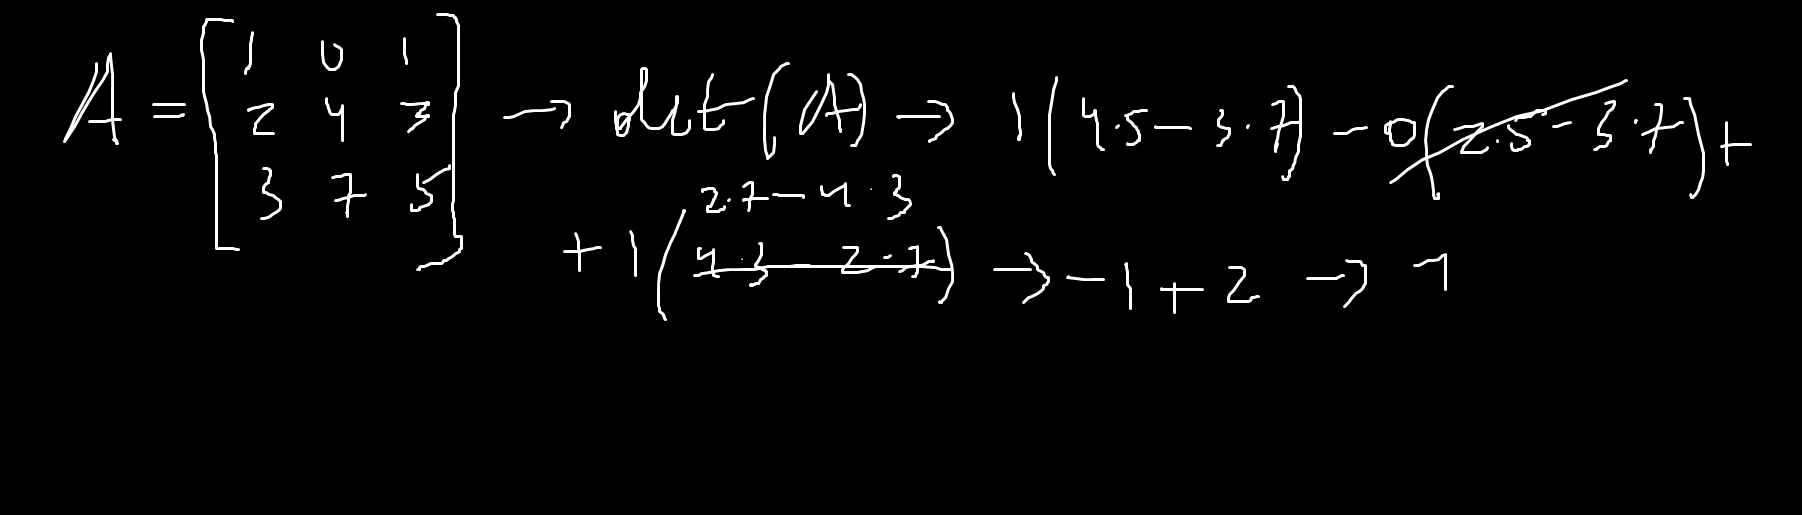 A = [1 0 1; 2 4 3; 3 7 5] → det(A) → 1(4·5 − 3·7) − 0(2·5 − 3·7) +
2·7 − 4·3
+ 1(4·3 − 2·7) → −1 + 2 → 1